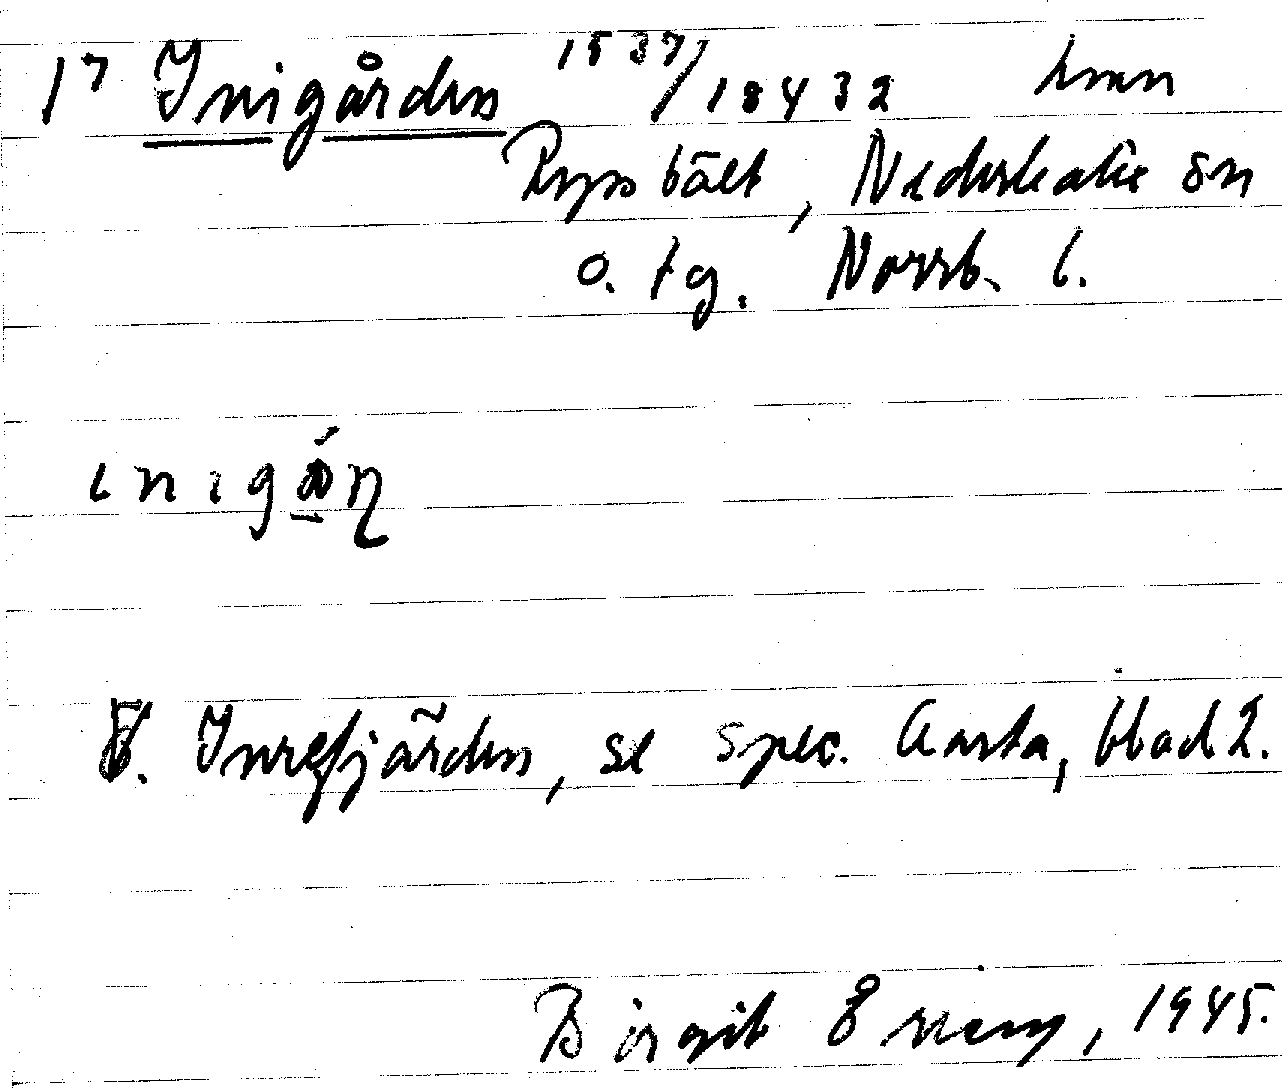 17 Inigården 1537/18432 hmn
Rysbält, Nederkalix sn
o. tg. Norrb. l.
inigán
V. Inrefjärden, se spec. karta, blad 2.
Birgit 1945.